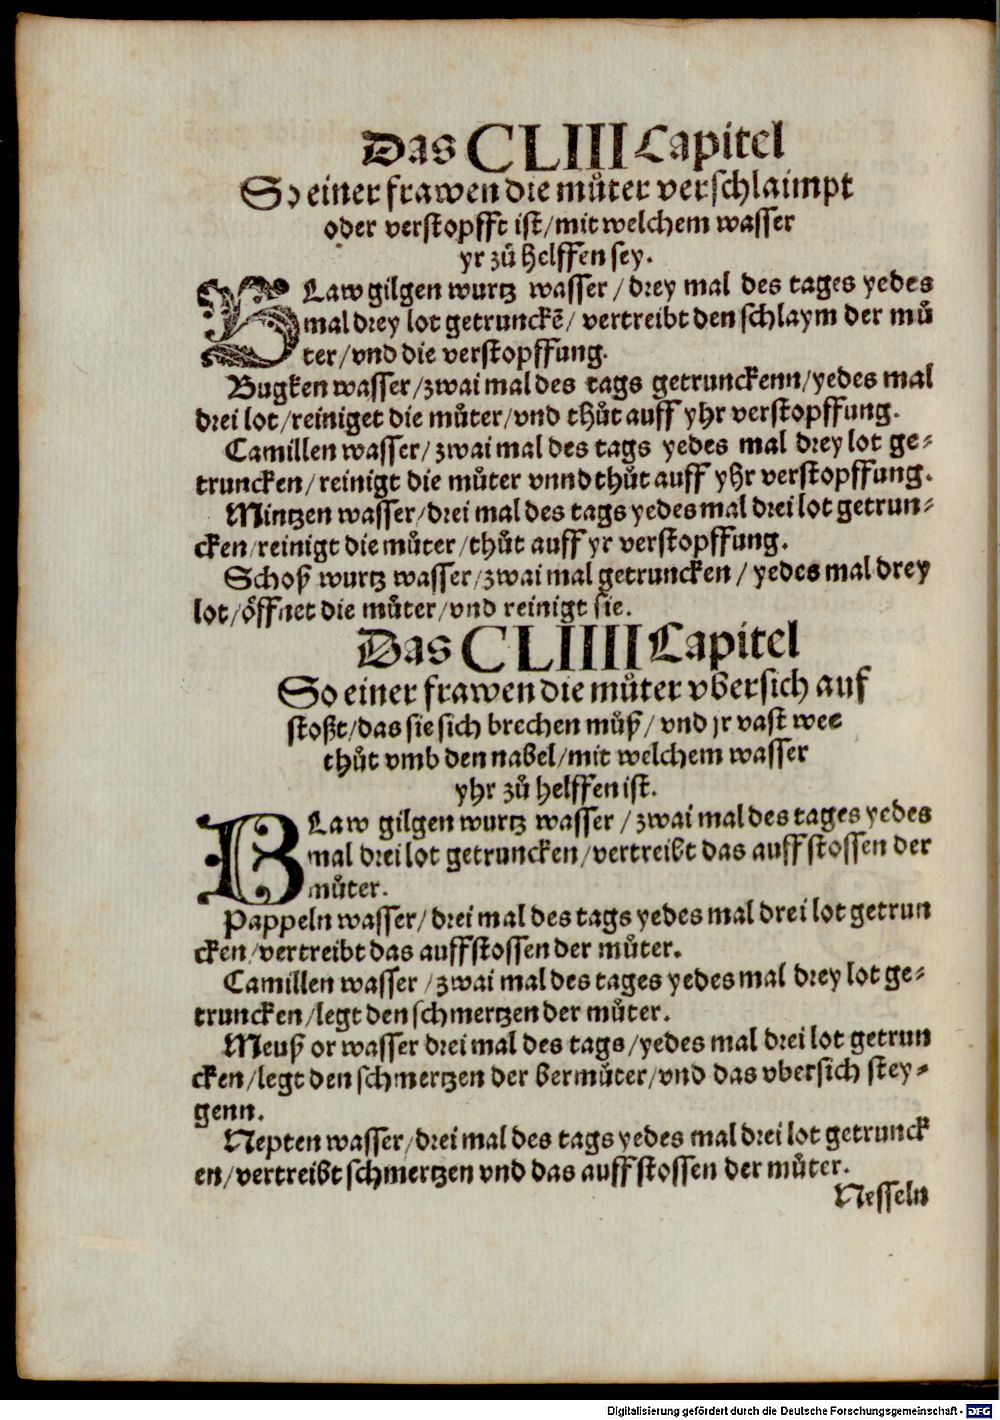 Das CLIII Capitel
So einer frawen die můter verschlaimpt
oder verstopfft ist/mit welchem wasser
yr zů helffen sey.
BLaw gilgen wurtz wasser/drey mal des tages yedes
mal drey lot getrunckẽ/vertreibt den schlaym der mů
ter/vnd die verstopffung.
Bugken wasser/zwai mal des tags getrunckenn/yedes mal
drei lot/reiniget die můter/vnd thůt auff yhr verstopffung.
Camillen wasser/zwai mal des tags yedes mal drey lot ge⸗
truncken/reinigt die můter vnnd thůt auff yhr verstopffung.
Mintzen wasser/drei mal des tags yedes mal drei lot getrun⸗
cken/reinigt die můter/thůt auff yr verstopffung.
Schoß wurtz wasser/zwai mal getruncken/yedes mal drey
lot/öffnet die můter/vnd reinigt sie.
Das CLIIII Capitel
So einer frawen die můter vbersich auf
stoßt/das sie sich brechen můß/vnd jr vast wee
thůt vmb den nabel/mit welchem wasser
yhr zů helffen ist.
BLaw gilgen wurtz wasser/zwai mal des tages yedes
mal drei lot getruncken/vertreibt das auffstossen der
můter.
Pappeln wasser/drei mal des tags yedes mal drei lot getrun
cken/vertreibt das auffstossen der můter.
Camillen wasser/zwai mal des tages yedes mal drey lot ge⸗
truncken/legt den schmertzen der můter.
Meuß or wasser drei mal des tags/yedes mal drei lot getrun
cken/legt den schmertzen der bermůter/vnd das vbersich stey⸗
genn.
Nepten wasser/drei mal des tags yedes mal drei lot getrunck
en/vertreibt schmertzen vnd das auffstossen der můter.
Nesseln
Digitalisierung gefördert durch die Deutsche Forschungsgemeinschaft - DFG